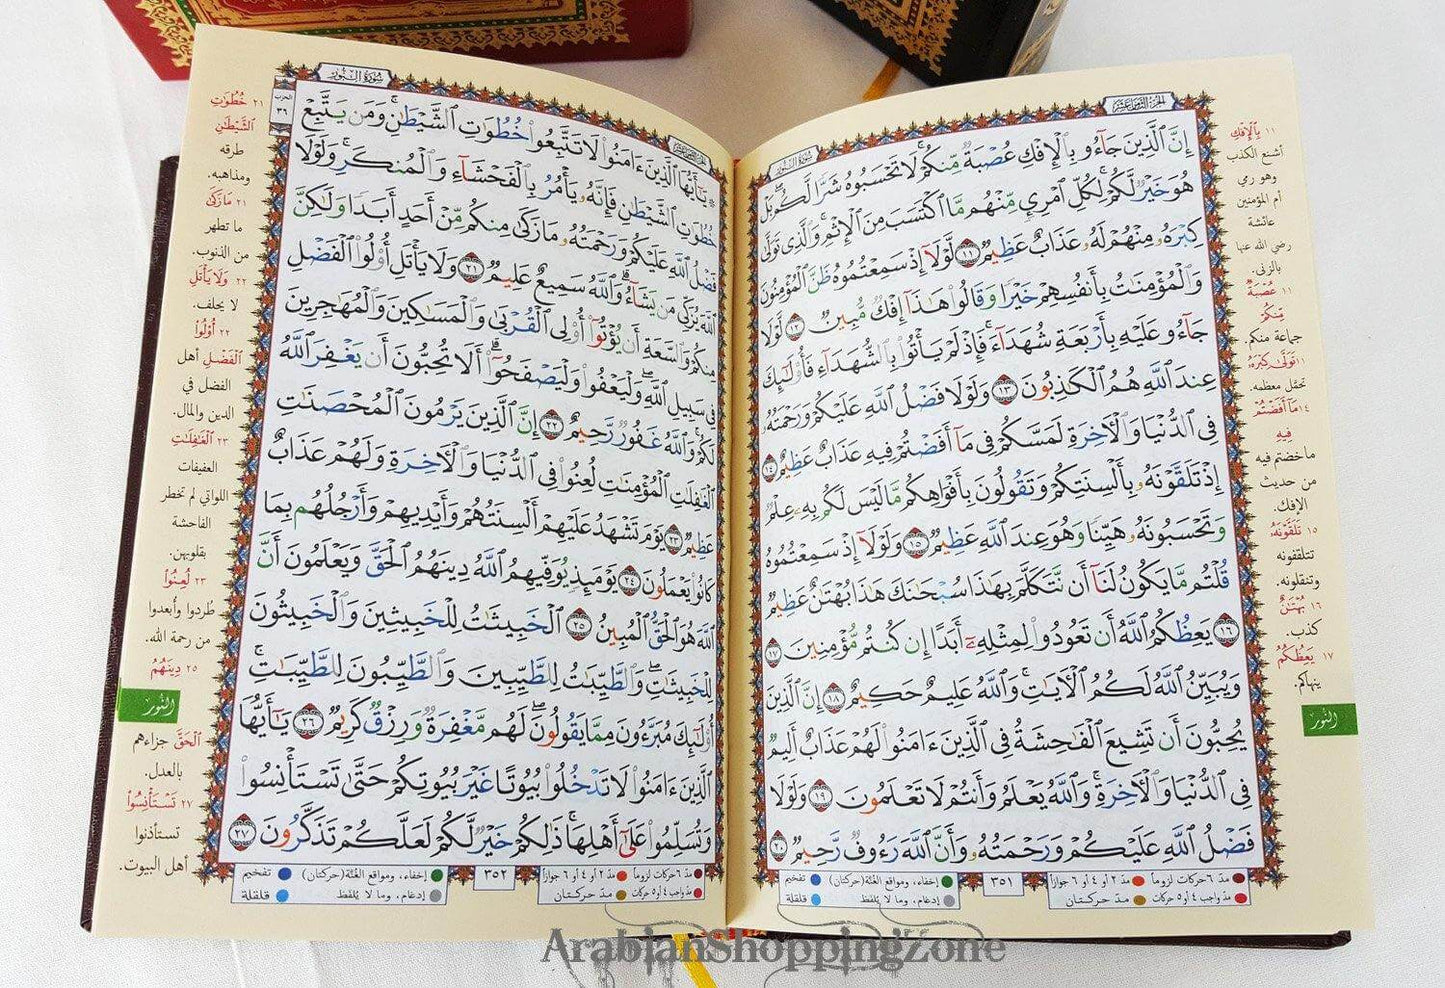 الجزء الثامن عشر
سورة النور
إِنَّ الَّذِينَ جَاءُو بِالْإِفْكِ عُصْبَةٌ مِّنكُمْ ۚ لَا تَحْسَبُوهُ شَرًّا لَّكُم ۖ بَلْ
هُوَ خَيْرٌ لَّكُمْ ۚ لِكُلِّ امْرِئٍ مِّنْهُم مَّا اكْتَسَبَ مِنَ الْإِثْمِ ۚ وَالَّذِي تَوَلَّىٰ
كِبْرَهُ مِنْهُمْ لَهُ عَذَابٌ عَظِيمٌ ١١ لَّوْلَا إِذْ سَمِعْتُمُوهُ ظَنَّ الْمُؤْمِنُونَ
وَالْمُؤْمِنَاتُ بِأَنفُسِهِمْ خَيْرًا وَقَالُوا هَٰذَا إِفْكٌ مُّبِينٌ ١٢ لَّوْلَا
جَاءُو عَلَيْهِ بِأَرْبَعَةِ شُهَدَاءَ ۚ فَإِذْ لَمْ يَأْتُوا بِالشُّهَدَاءِ فَأُولَٰئِكَ
عِندَ اللَّهِ هُمُ الْكَاذِبُونَ ١٣ وَلَوْلَا فَضْلُ اللَّهِ عَلَيْكُمْ وَرَحْمَتُهُ
فِي الدُّنْيَا وَالْآخِرَةِ لَمَسَّكُمْ فِي مَا أَفَضْتُمْ فِيهِ عَذَابٌ عَظِيمٌ ١٤
إِذْ تَلَقَّوْنَهُ بِأَلْسِنَتِكُمْ وَتَقُولُونَ بِأَفْوَاهِكُم مَّا لَيْسَ لَكُم بِهِ عِلْمٌ
وَتَحْسَبُونَهُ هَيِّنًا وَهُوَ عِندَ اللَّهِ عَظِيمٌ ١٥ وَلَوْلَا إِذْ سَمِعْتُمُوهُ
قُلْتُم مَّا يَكُونُ لَنَا أَن نَّتَكَلَّمَ بِهَٰذَا سُبْحَانَكَ هَٰذَا بُهْتَانٌ عَظِيمٌ
١٦ يَعِظُكُمُ اللَّهُ أَن تَعُودُوا لِمِثْلِهِ أَبَدًا إِن كُنتُم مُّؤْمِنِينَ ١٧
وَيُبَيِّنُ اللَّهُ لَكُمُ الْآيَاتِ ۚ وَاللَّهُ عَلِيمٌ حَكِيمٌ ١٨ إِنَّ الَّذِينَ
يُحِبُّونَ أَن تَشِيعَ الْفَاحِشَةُ فِي الَّذِينَ آمَنُوا لَهُمْ عَذَابٌ أَلِيمٌ
فِي الدُّنْيَا وَالْآخِرَةِ ۚ وَاللَّهُ يَعْلَمُ وَأَنتُمْ لَا تَعْلَمُونَ ١٩ وَلَوْلَا
فَضْلُ اللَّهِ عَلَيْكُمْ وَرَحْمَتُهُ وَأَنَّ اللَّهَ رَءُوفٌ رَّحِيمٌ ٢٠
١١ بِالْإِفْكِ
أشنع الكذب
وهو رمي
أم المؤمنين
عائشة
رضي الله عنها
بالزنى.
١١ عُصْبَةٌ
مِّنكُمْ
جماعة منكم.
١١ تَوَلَّىٰ كِبْرَهُ
تحمّل معظمه.
١٤ مَا أَفَضْتُمْ
فِيهِ
ما خضتم فيه
من حديث
الإفك.
١٥ تَلَقَّوْنَهُ
تتلقفونه
وتنقلونه.
١٦ بُهْتَانٌ
كذب.
١٧ يَعِظُكُمُ
ينهاكم.
النور
مدّ ٦ حركات لزوماً مدّ ٢ أو ٤ أو ٦ جوازاً
مدّ واجب ٤ أو ٥ حركات مدّ حركتان
٣٥١
إخفاء، ومواقع الغُنَّة (حركتان) تفخيم
إدغام، وما لا يُلفظ قلقلة
الجزء الثامن عشر
سورة النور
الحزب
٣٦
يَا أَيُّهَا الَّذِينَ آمَنُوا لَا تَتَّبِعُوا خُطُوَاتِ الشَّيْطَانِ ۚ وَمَن يَتَّبِعْ
خُطُوَاتِ الشَّيْطَانِ فَإِنَّهُ يَأْمُرُ بِالْفَحْشَاءِ وَالْمُنكَرِ ۚ وَلَوْلَا
فَضْلُ اللَّهِ عَلَيْكُمْ وَرَحْمَتُهُ مَا زَكَىٰ مِنكُم مِّنْ أَحَدٍ أَبَدًا وَلَٰكِنَّ
اللَّهَ يُزَكِّي مَن يَشَاءُ ۗ وَاللَّهُ سَمِيعٌ عَلِيمٌ ٢١ وَلَا يَأْتَلِ أُولُو الْفَضْلِ
مِنكُمْ وَالسَّعَةِ أَن يُؤْتُوا أُولِي الْقُرْبَىٰ وَالْمَسَاكِينَ وَالْمُهَاجِرِينَ
فِي سَبِيلِ اللَّهِ ۖ وَلْيَعْفُوا وَلْيَصْفَحُوا ۗ أَلَا تُحِبُّونَ أَن يَغْفِرَ اللَّهُ
لَكُمْ ۗ وَاللَّهُ غَفُورٌ رَّحِيمٌ ٢٢ إِنَّ الَّذِينَ يَرْمُونَ الْمُحْصَنَاتِ
الْغَافِلَاتِ الْمُؤْمِنَاتِ لُعِنُوا فِي الدُّنْيَا وَالْآخِرَةِ وَلَهُمْ عَذَابٌ
عَظِيمٌ ٢٣ يَوْمَ تَشْهَدُ عَلَيْهِمْ أَلْسِنَتُهُمْ وَأَيْدِيهِمْ وَأَرْجُلُهُم بِمَا
كَانُوا يَعْمَلُونَ ٢٤ يَوْمَئِذٍ يُوَفِّيهِمُ اللَّهُ دِينَهُمُ الْحَقَّ وَيَعْلَمُونَ أَنَّ
اللَّهَ هُوَ الْحَقُّ الْمُبِينُ ٢٥ الْخَبِيثَاتُ لِلْخَبِيثِينَ وَالْخَبِيثُونَ
لِلْخَبِيثَاتِ ۖ وَالطَّيِّبَاتُ لِلطَّيِّبِينَ وَالطَّيِّبُونَ لِلطَّيِّبَاتِ ۚ
أُولَٰئِكَ مُبَرَّءُونَ مِمَّا يَقُولُونَ ۖ لَهُم مَّغْفِرَةٌ وَرِزْقٌ كَرِيمٌ ٢٦ يَا أَيُّهَا
الَّذِينَ آمَنُوا لَا تَدْخُلُوا بُيُوتًا غَيْرَ بُيُوتِكُمْ حَتَّىٰ تَسْتَأْنِسُوا
وَتُسَلِّمُوا عَلَىٰ أَهْلِهَا ۚ ذَٰلِكُمْ خَيْرٌ لَّكُمْ لَعَلَّكُمْ تَذَكَّرُونَ ٢٧
٢١ خُطُوَاتِ
الشَّيْطَانِ
طرقه
ومذاهبه.
٢١ مَا زَكَىٰ
ما تطهر
من الذنوب.
٢٢ وَلَا يَأْتَلِ
لا يحلف.
٢٢ أُولُو
الْفَضْلِ أهل
الفضل في
الدين والمال.
٢٣ الْغَافِلَاتِ
العفيفات
اللواتي لم تخطر
الفاحشة
بقلوبهن.
٢٣ لُعِنُوا
طُردوا وأبعدوا
من رحمة الله.
٢٥ دِينَهُمُ
النور
الْحَقَّ جزاءهم
بالعدل.
٢٧ تَسْتَأْنِسُوا
تستأذنوا
أهل البيوت.
مدّ ٦ حركات لزوماً مدّ ٢ أو ٤ أو ٦ جوازاً
مدّ واجب ٤ أو ٥ حركات مدّ حركتان
٣٥٢
إخفاء، ومواقع الغُنَّة (حركتان) تفخيم
إدغام، وما لا يُلفظ قلقلة
ArabianShoppingZone